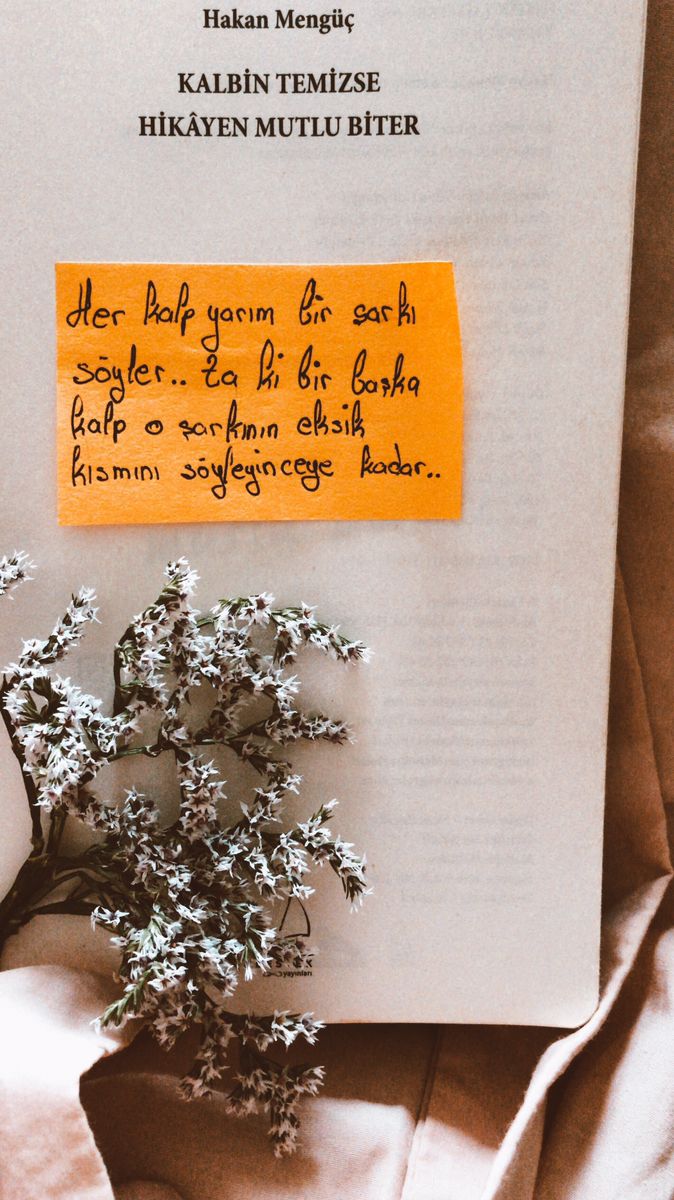 Hakan Mengüç
KALBİN TEMİZSE
HİKÂYEN MUTLU BİTER
Her kalp yarım bir şarkı
söyler.. Ta ki bir başka
kalp o şarkının eksik
kısmını söyleyinceye kadar..
yayınları